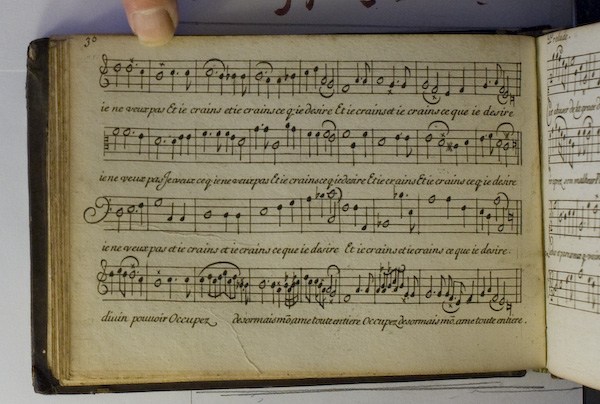 30
ie ne veux pas Et ie crains et ie crains ce q; ie desire Et ie crains et ie crains ce que ie desire
ie ne veux pas Je veux ce q; ie ne veux pas Et ie crains ce q; ie desire Et ie crains et ie crains Et ie crains ce q; ie desire
ie ne veux pas et ie crains et ie crains ce que ie desire Et ie crains et ie crains ce que ie desire.
diuin pouuoir Occupez desormais mõ ame toute entiere Occupez desormais mõ ame toute entiere.